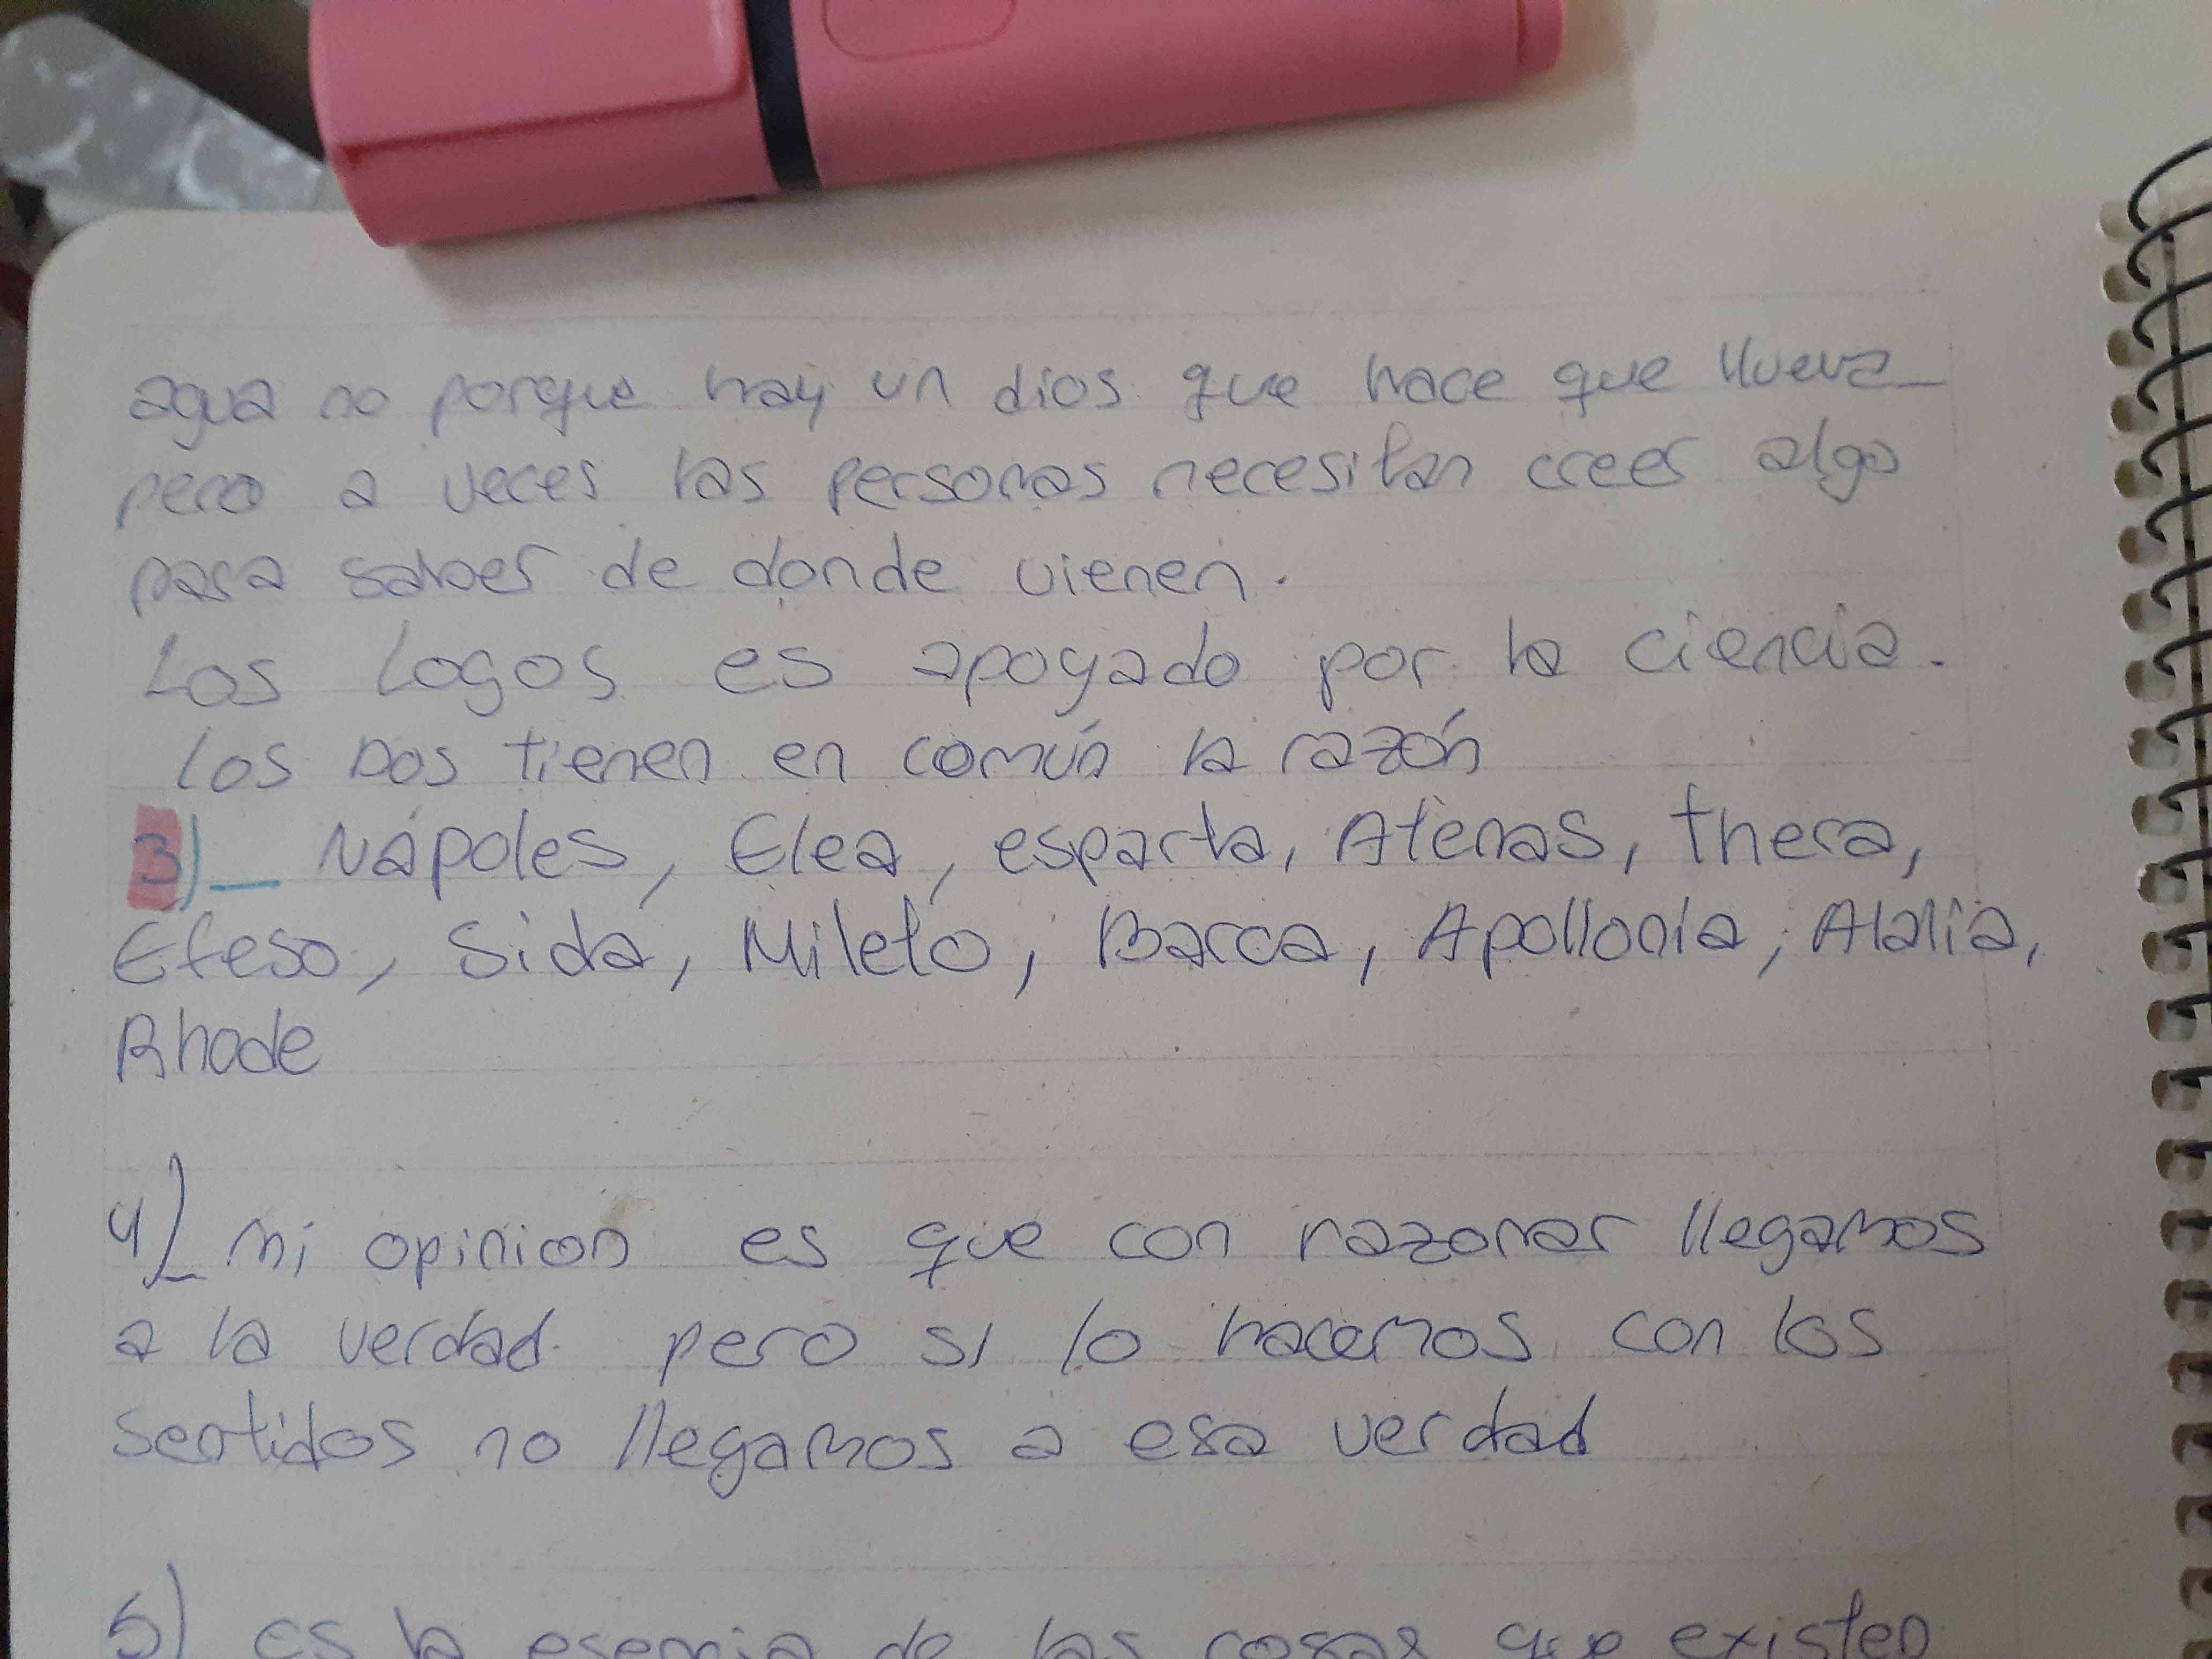 agua no porque hay un dios que hace que llueva_
pero a veces las personas necesitan creer algo
para saber de donde vienen.
Los Logos es apoyado por la ciencia.
Los Dos tienen en común la razón
3)_ Nápoles, Elea, esparta, Atenas, thera,
Efeso, Sida, Mileto, Barca, Apollonia, Alalia,
Rhode
4)_ mi opinion es que con razonar llegamos
a la verdad pero si lo hacemos con los
sentidos no llegamos a esa verdad
5) es la esencia de las cosas que existen